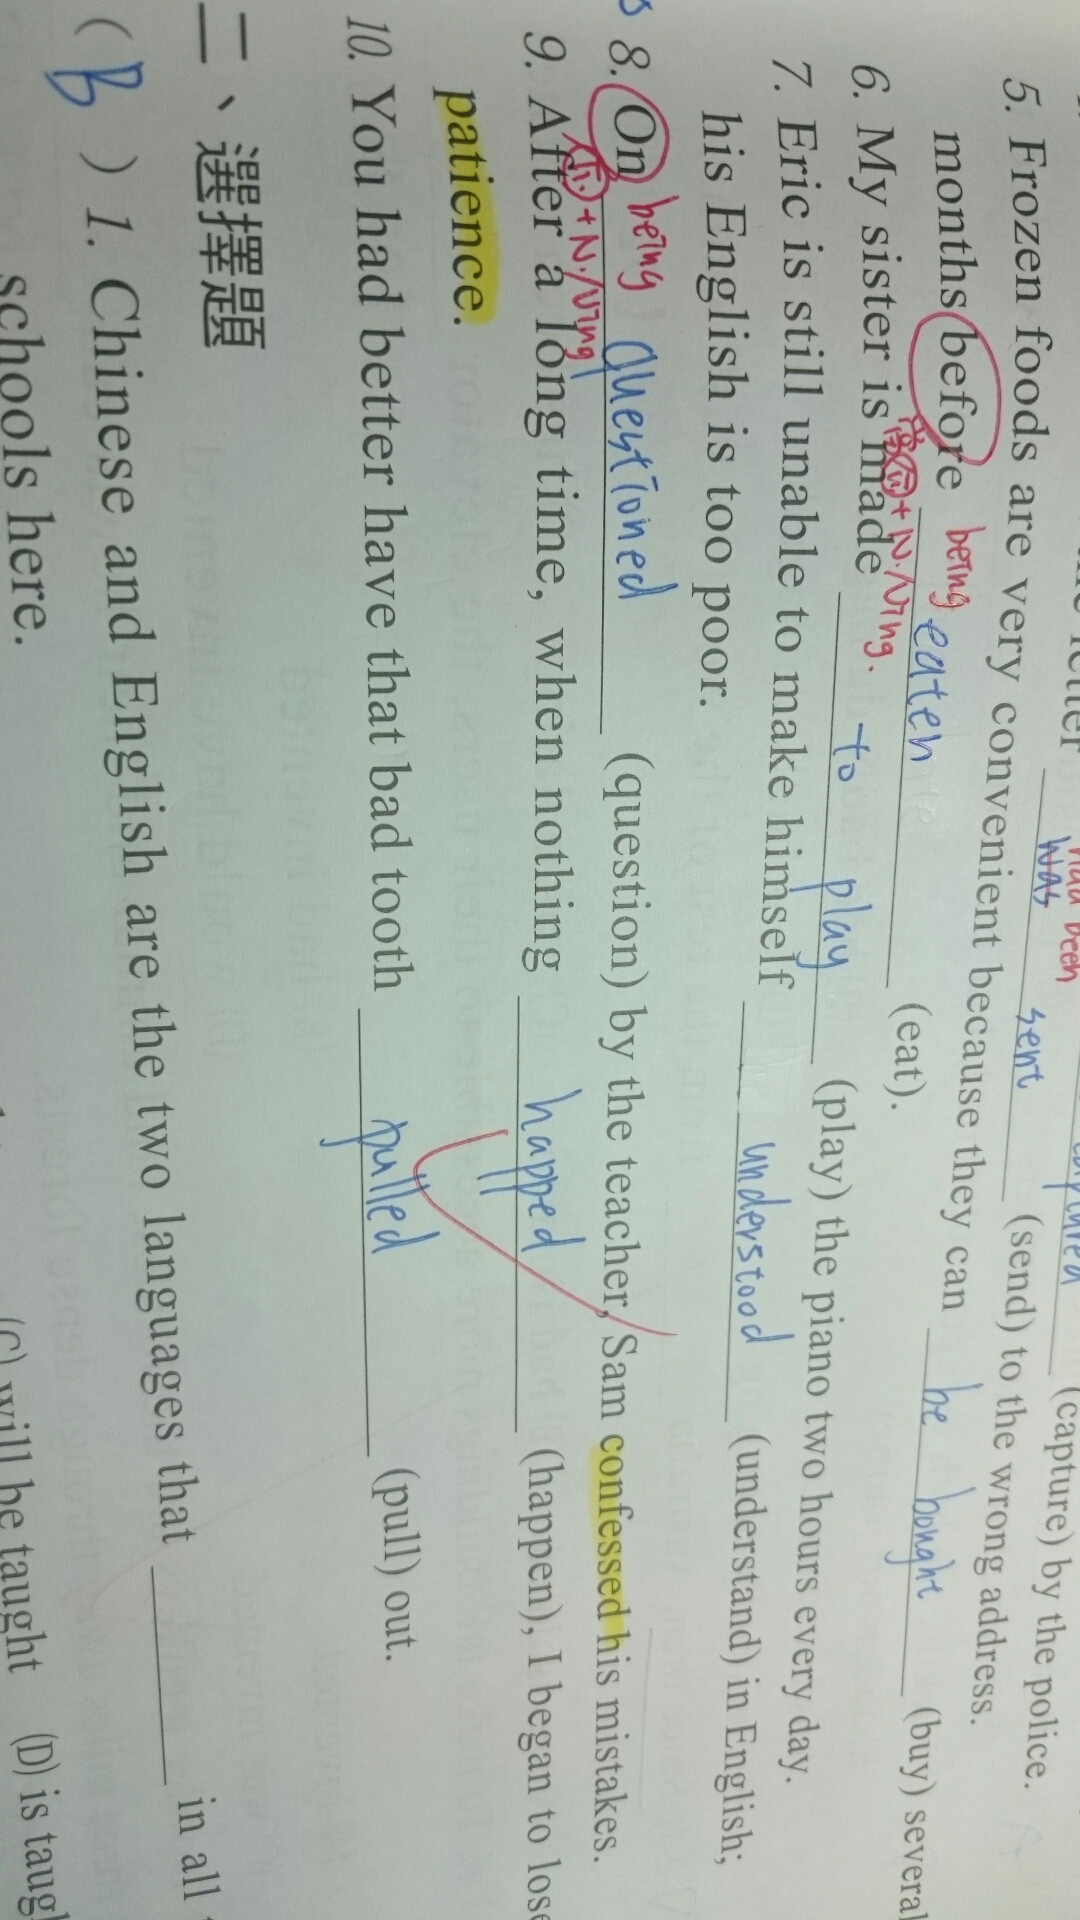 had been
was sent (send) to the wrong address.
(capture) by the police.
5. Frozen foods are very convenient because they can be bought (buy) several
months before being eaten (eat).
介 + N./Ving.
6. My sister is made to play (play) the piano two hours every day.
7. Eric is still unable to make himself understood (understand) in English;
his English is too poor.
8. On being questioned (question) by the teacher, Sam confessed his mistakes.
介 + N./Ving
9. After a long time, when nothing happed (happen), I began to lose
patience.
10. You had better have that bad tooth pulled (pull) out.
二、選擇題
( B ) 1. Chinese and English are the two languages that ______ in all
schools here.
(C) will be taught (D) is taug